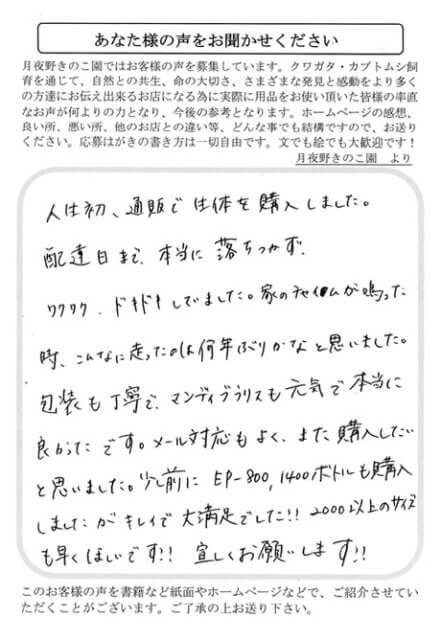 あなた様の声をお聞かせください
月夜野きのこ園ではお客様の声を募集しています。クワガタ・カブトムシ飼
育を通じて、自然との共生、命の大切さ、さまざまな発見と感動をより多く
の方達にお伝え出来るお店になる為に実際に用品をお使い頂いた皆様の率直
なお声が何よりの力となり、今後の参考となります。ホームページの感想、
良い所、悪い所、他のお店との違い等、どんな事でも結構ですので、お送り
ください。応募はがきの書き方は一切自由です。文でも絵でも大歓迎です！
月夜野きのこ園　より
人生初、通販で生体を購入しました。
配達日まで、本当に落ちつかず、
ワクワク、ドキドキしでました。家のチャイムが鳴った
時、こんなに走ったのは何年ぶりかなと思いました。
包装も丁寧で、マンディブラリスも元気で本当に
良かったです。メール対応もよく、また購入したい
と思いました。少し前にEP-800,1400ボトルも購入
しましたがキレイで大満足でした!! 2000以上のサイズ
も早くほしいです!! 宜しくお願いします!!
このお客様の声を書籍など紙面やホームページなどで、ご紹介させてい
ただくことがございます。ご了承の上お送り下さい。